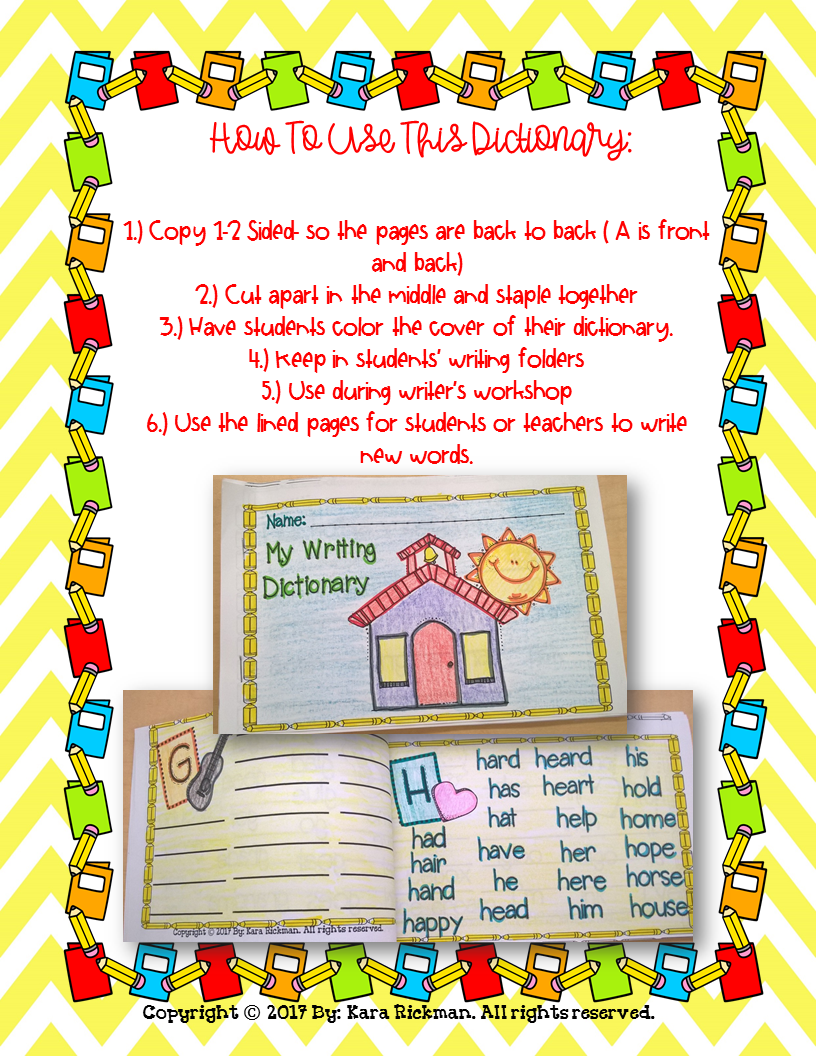 How To Use This Dictionary:
1.) Copy 1-2 Sided- so the pages are back to back ( A is front
and back)
2.) Cut apart in the middle and staple together
3.) Have students color the cover of their dictionary.
4.) Keep in students' writing folders
5.) Use during writer's workshop
6.) Use the lined pages for students or teachers to write
new words.
Name:
My Writing
Dictionary
G
H
had
hair
hand
happy
hard
has
hat
have
he
head
heard
heart
help
her
here
him
his
hold
home
hope
horse
house
Copyright © 2017 By: Kara Rickman. All rights reserved.
Copyright © 2017 By: Kara Rickman. All rights reserved.